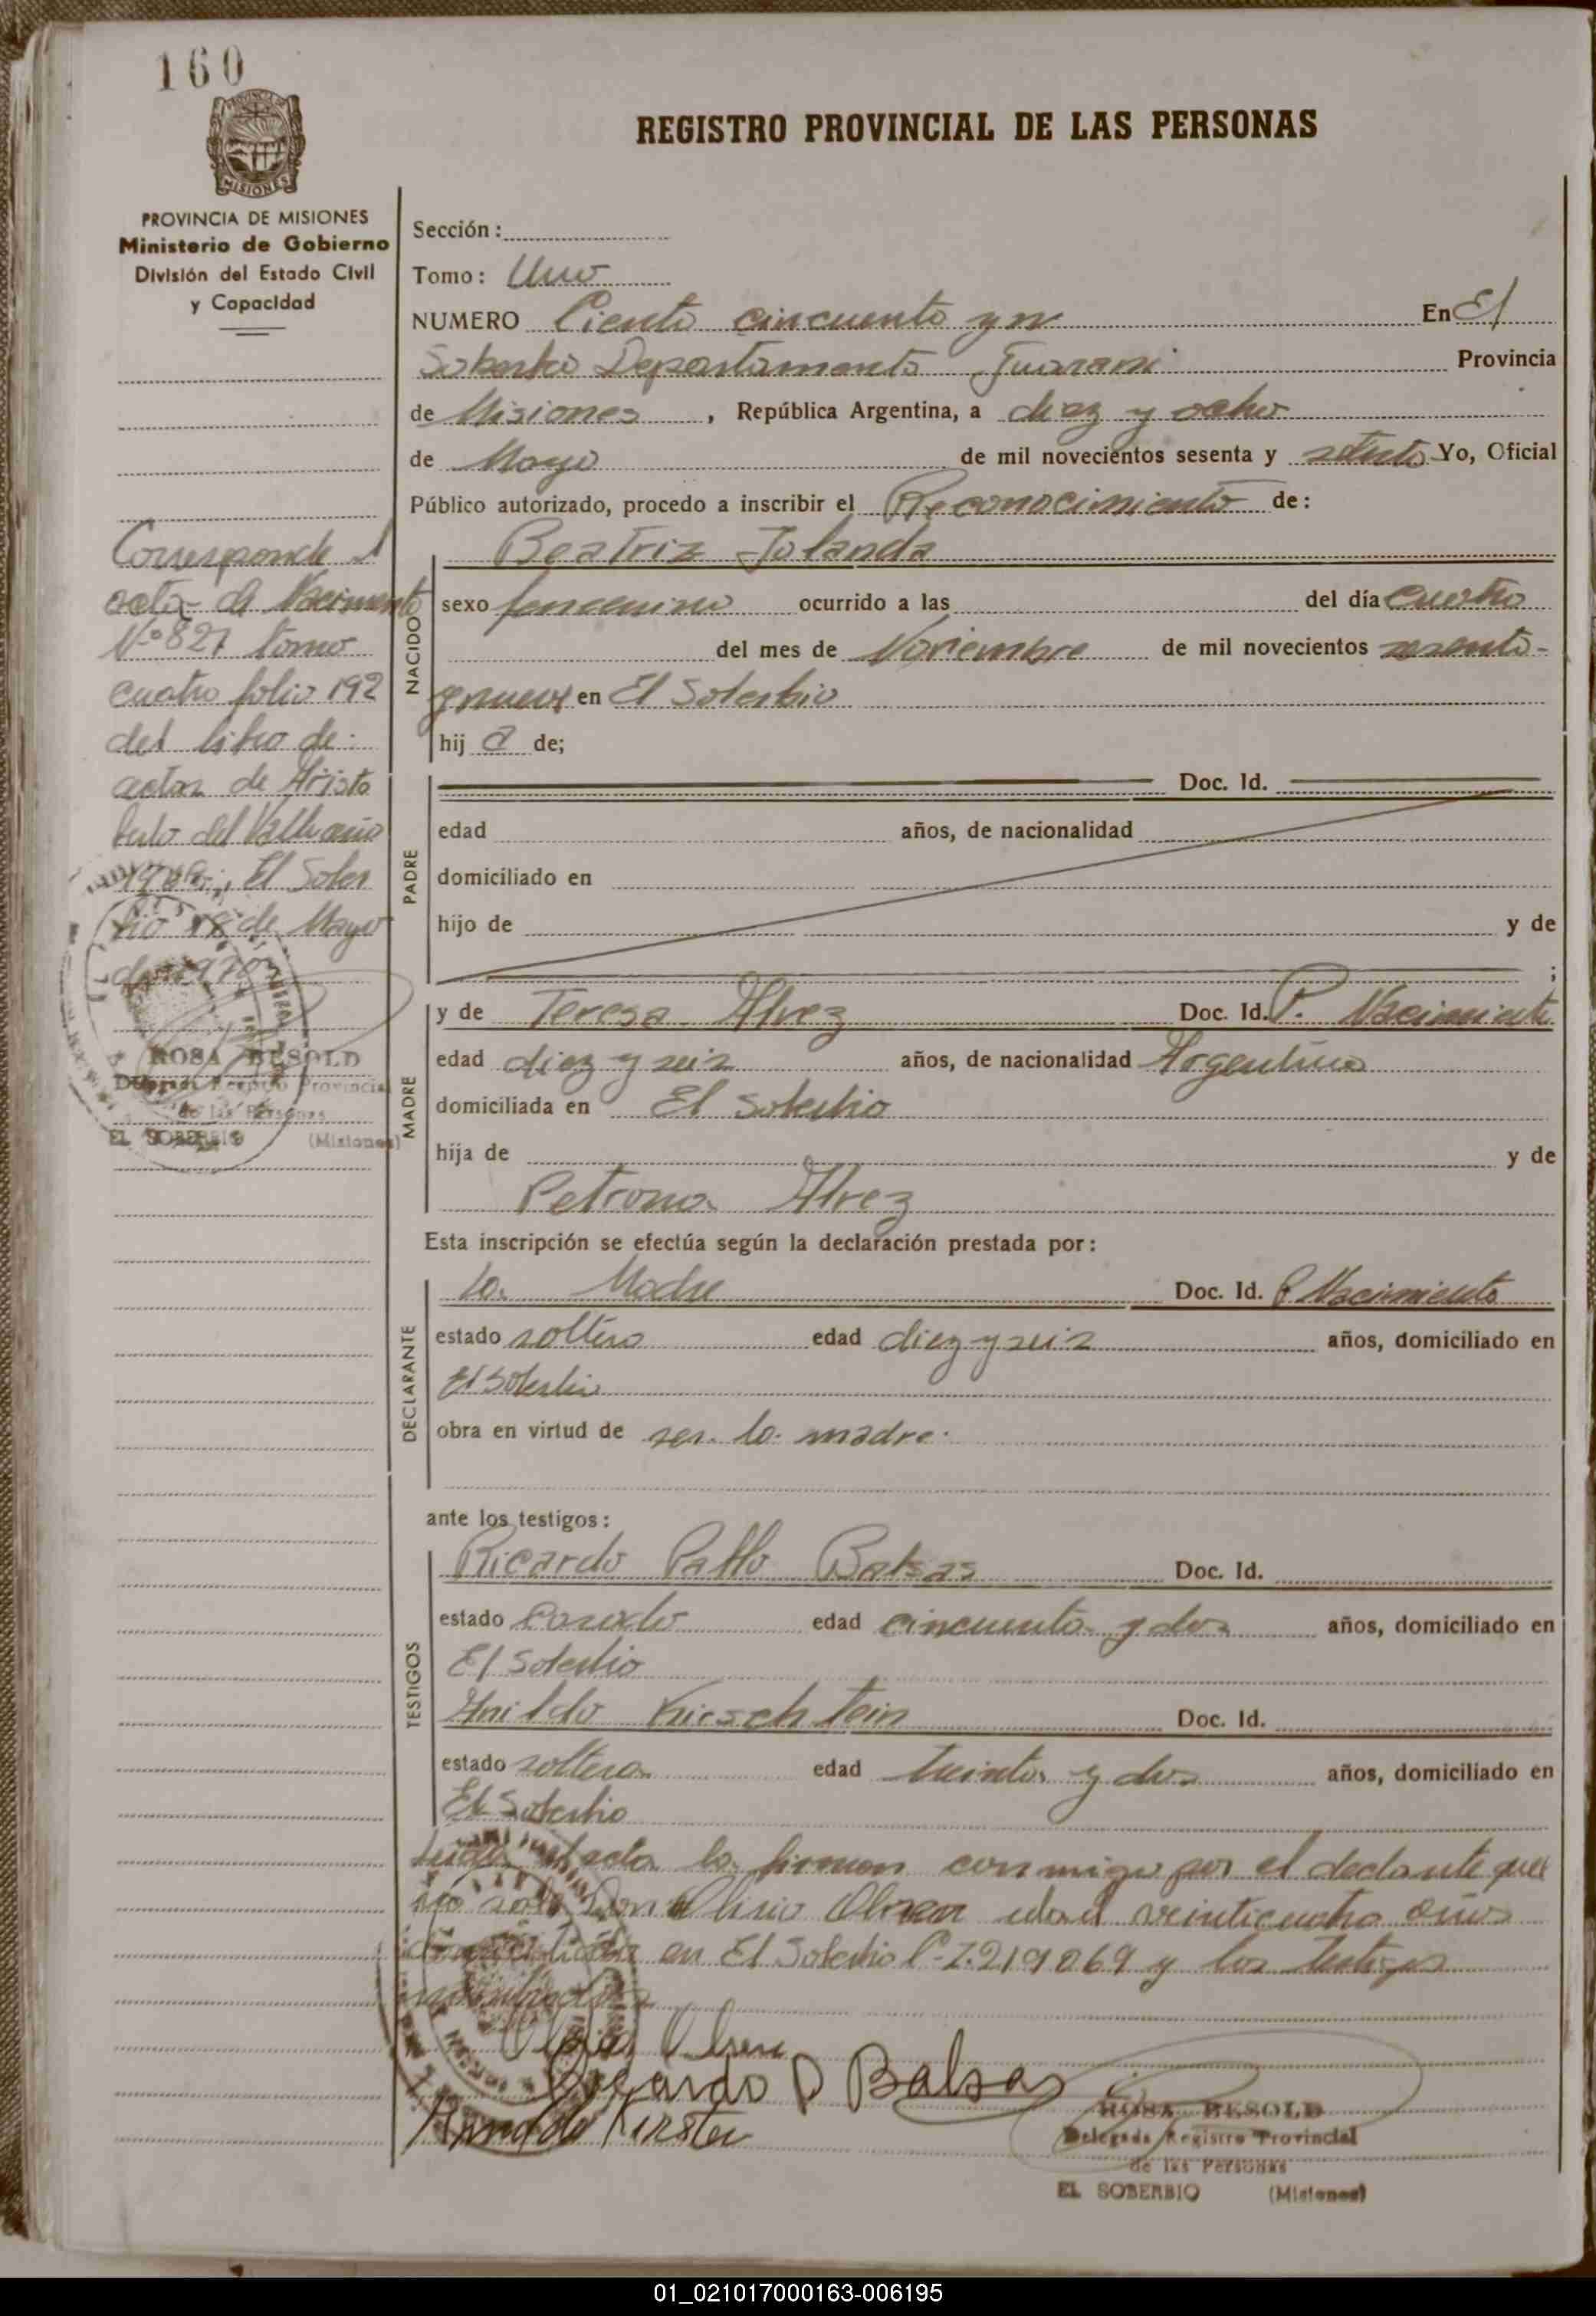 160
PROVINCIA DE MISIONES
Ministerio de Gobierno
División del Estado Civil
y Capacidad
REGISTRO PROVINCIAL DE LAS PERSONAS
Sección :
Tomo : Uno
NUMERO Ciento cincuenta y En El
Soberbio Departamento Guarani Provincia
de Misiones , República Argentina, a diez y ocho
de Mayo de mil novecientos sesenta y setenta Yo, Oficial
Público autorizado, procedo a inscribir el Reconocimiento de :
Beatriz Iolanda
NACIDO
sexo femenino ocurrido a las del día Cuatro
del mes de Noviembre de mil novecientos sesenta
y nueve en El Soberbio
hij a de;
Corresponde
acta de Nacimiento
Nº 827 tomo
cuatro folio 192
del libro de
actas de Aristo
bulo del Valle año
El Sober
bio 18 de Mayo
de 1970
ROSA BESOLD
Delegada Registro Provincial
de las Personas
EL SOBERBIO (Misiones)
PADRE
Doc. Id.
edad años, de nacionalidad
domiciliado en
hijo de y de
;
MADRE
y de Teresa Alvez Doc. Id. P. Nacimiento
edad diez y seis años, de nacionalidad Argentina
domiciliada en El Soberbio
hija de y de
Petrona Alvez
Esta inscripción se efectúa según la declaración prestada por :
DECLARANTE
La Madre Doc. Id. P Nacimiento
estado soltera edad diez y seis años, domiciliado en
El Soberbio
obra en virtud de ser la madre.
ante los testigos :
TESTIGOS
Ricardo Pablo Balsas Doc. Id.
estado Casado edad cincuenta y dos años, domiciliado en
El Soberbio
Kirschtein Doc. Id.
estado soltero edad treinta y dos años, domiciliado en
El Soberbio
Leida el acta la firman conmigo por el declante que
no sabe Don edad veinticuatro años
domiciliado en El Soberbio 7.219069 y los testigos
nombrados
Ricardo P Balsas
ROSA BESOLD
Delegada Registro Provincial
de las Personas
EL SOBERBIO (Misiones)
01_021017000163-006195